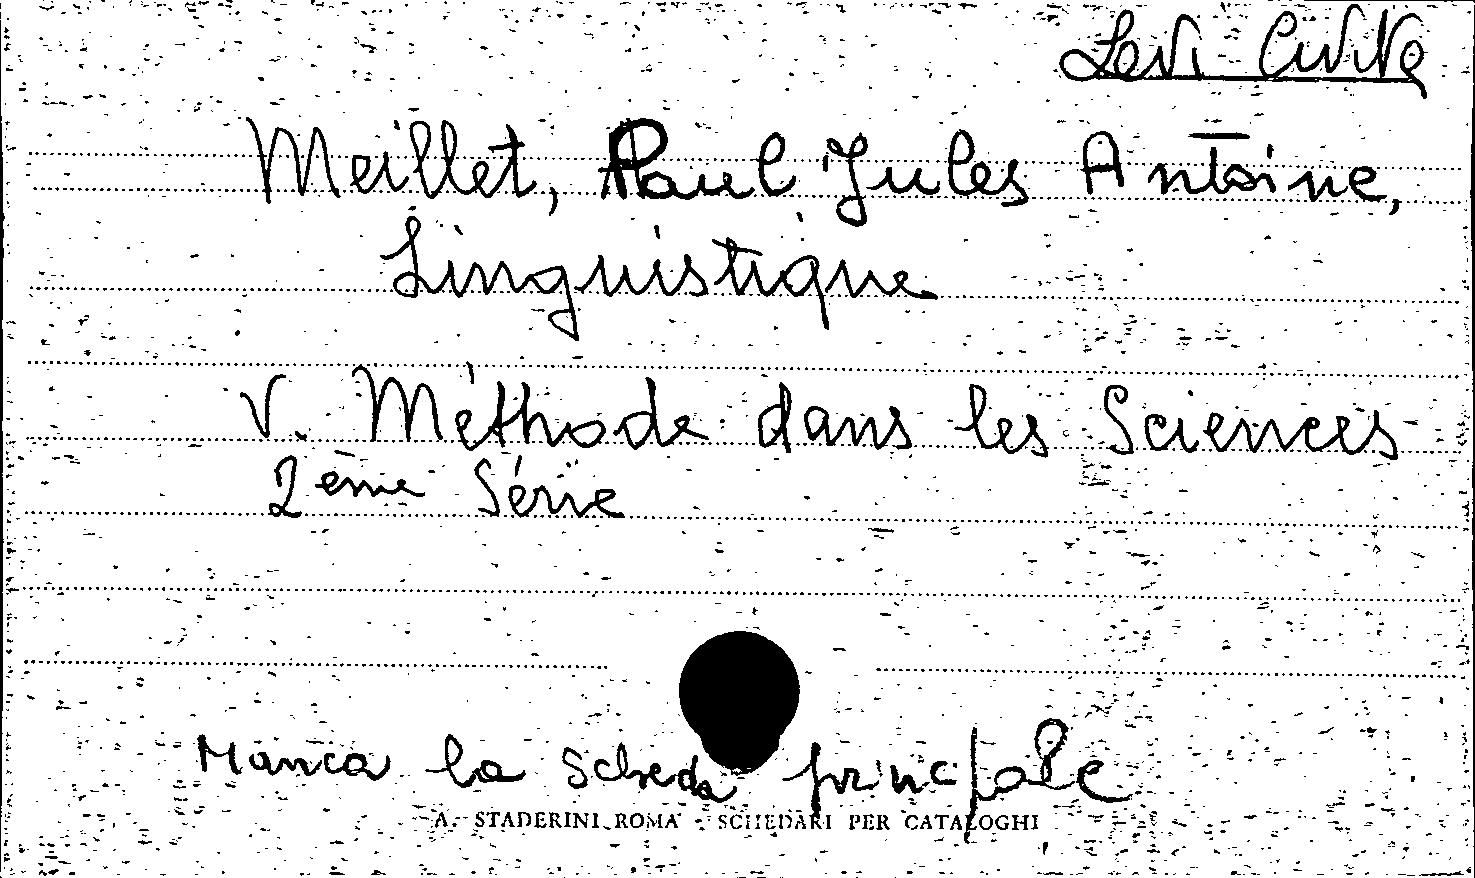 Levi Civita
Meillet, Paul Jules Antoine,
Linguistique
V. Méthode dans les Sciences
2ème Série
Manca la scheda principale
A. STADERINI ROMA - SCHEDARI PER CATALOGHI